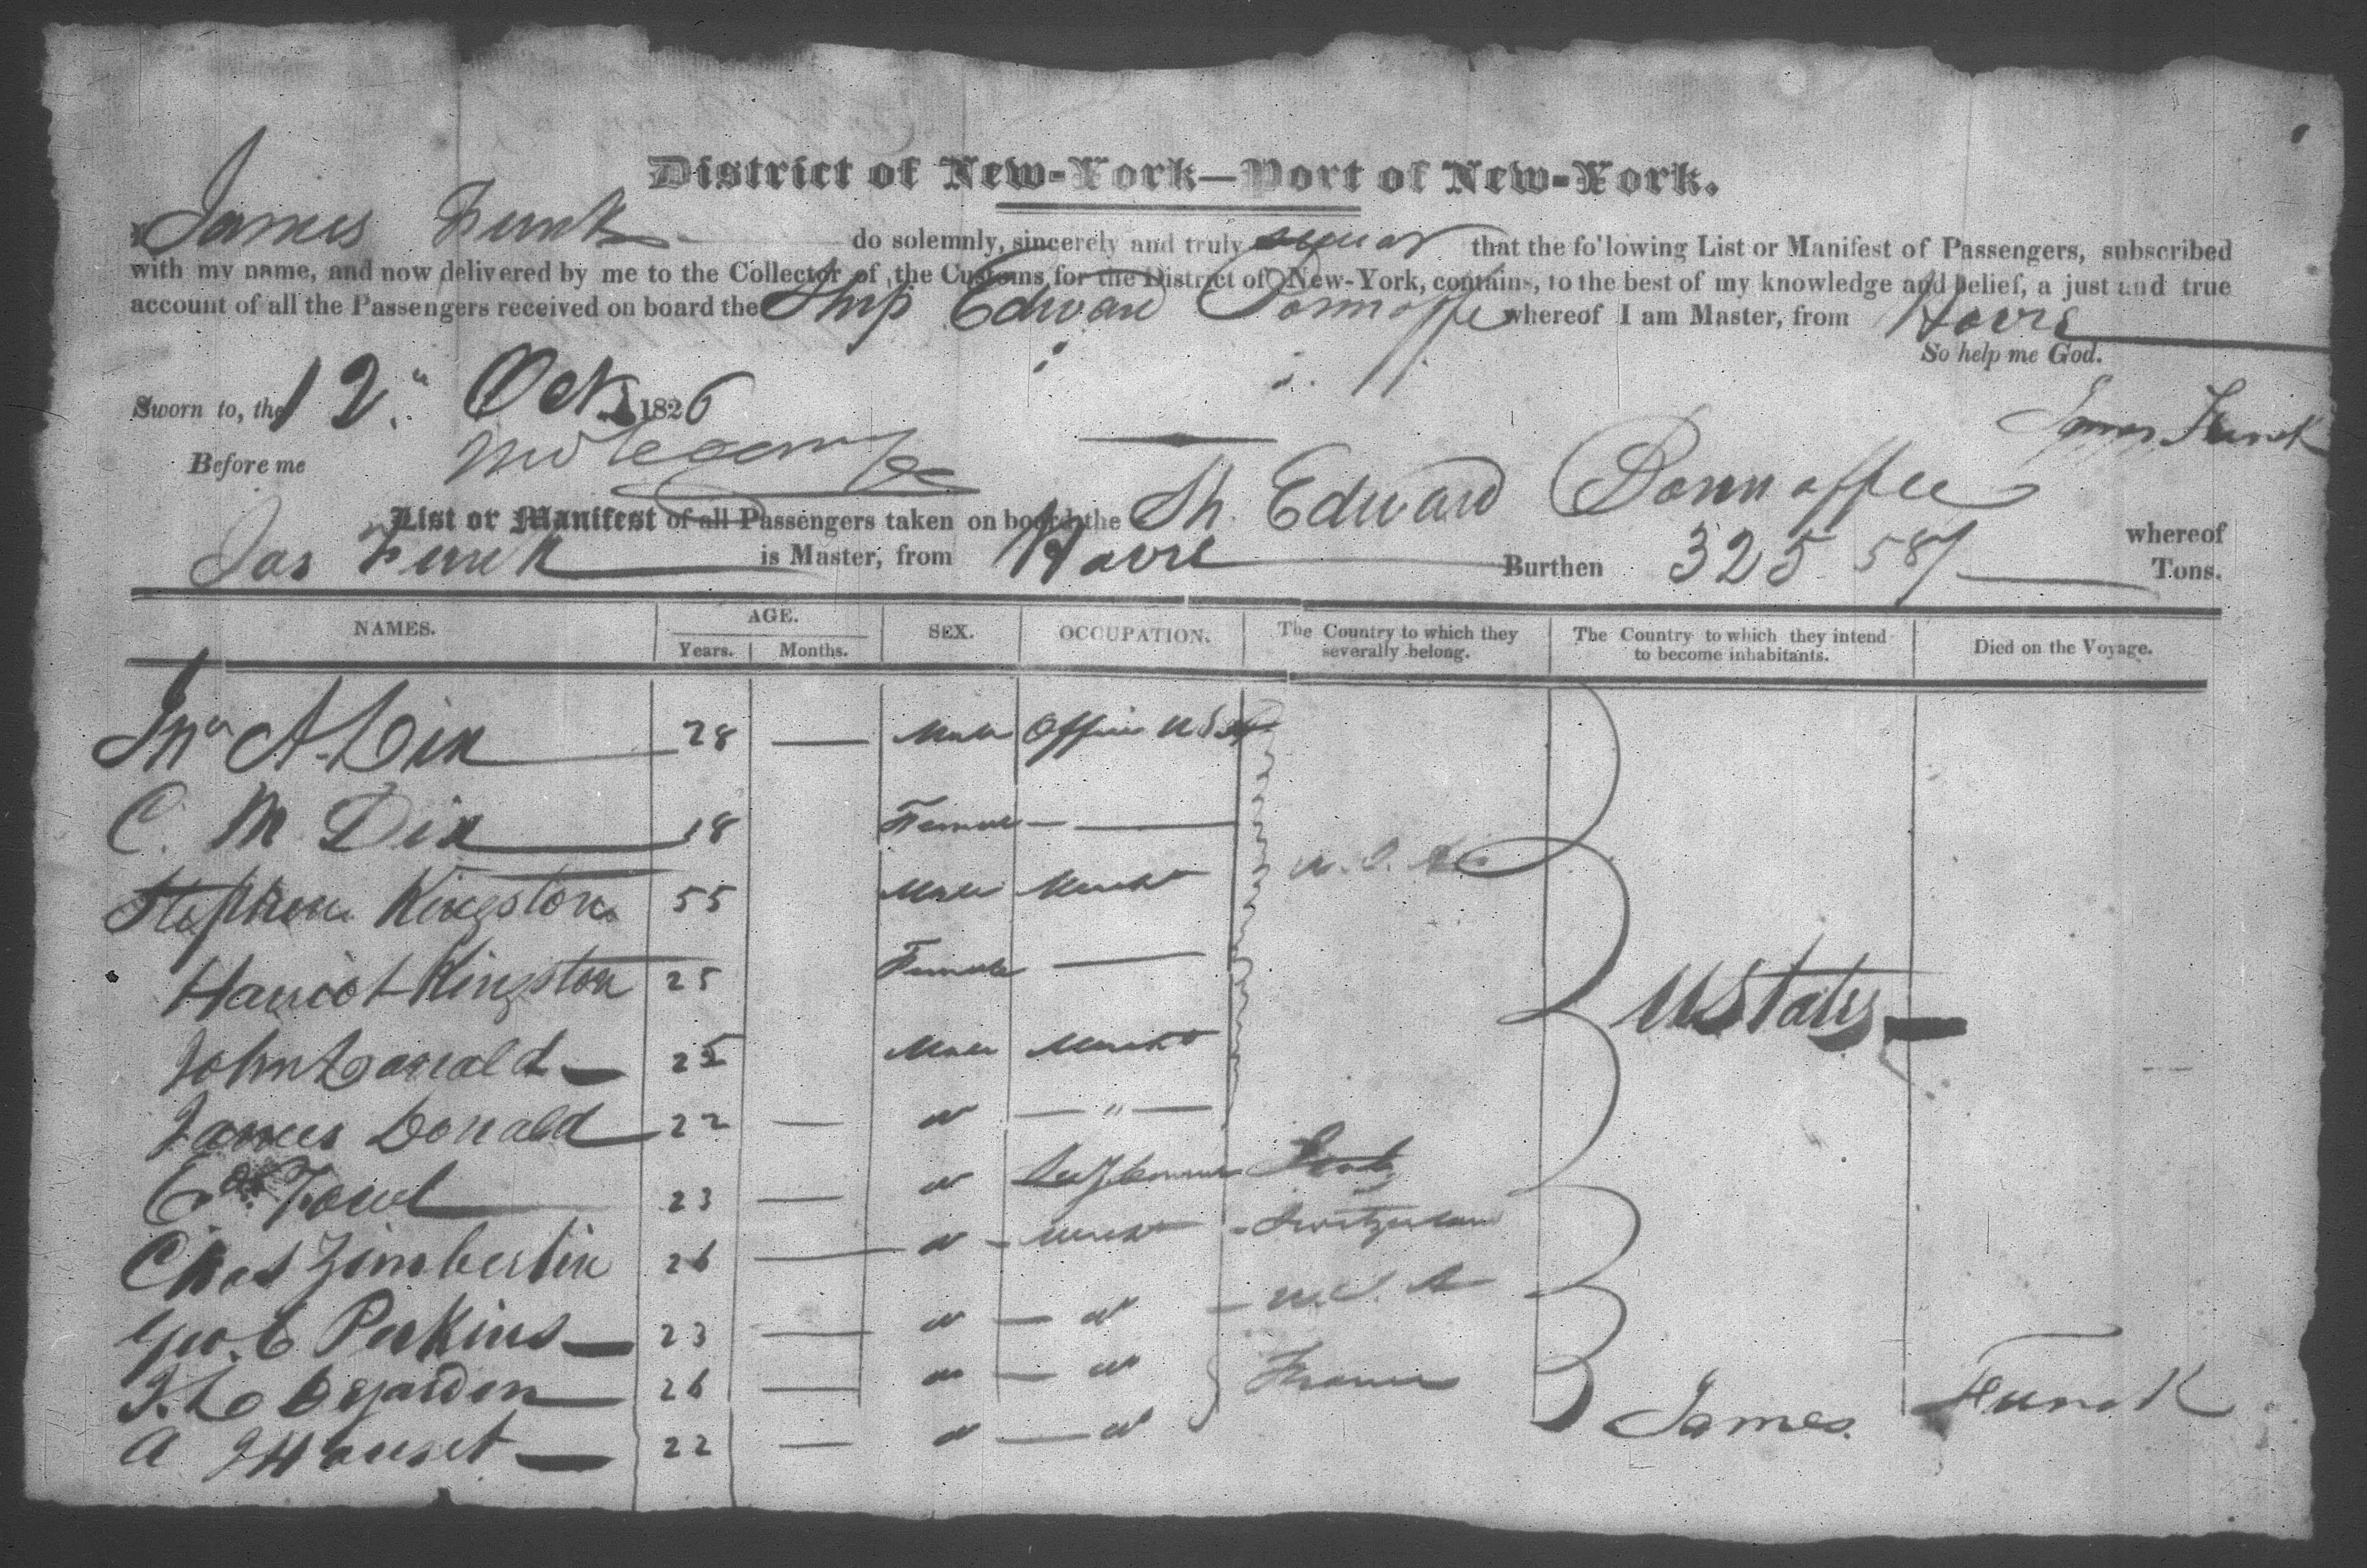 District of New-York—Port of New-York.
James Funk do solemnly, sincerely and truly swear that the fo'lowing List or Manifest of Passengers, subscribed
with my name, and now delivered by me to the Collector of the Customs for the District of New-York, contains, to the best of my knowledge and belief, a just and true
account of all the Passengers received on board the Ship Edward Bonnaffe whereof I am Master, from Havre
So help me God.
Sworn to, the 12" Oct 1826
James Funk
Before me
List or Manifest of all Passengers taken on board the Sh. Edward Bonnaffee whereof
Jas Funk is Master, from Havre Burthen 325 58/ Tons.
NAMES. AGE. SEX. OCCUPATION. The Country to which they severally belong. The Country to which they intend to become inhabitants. Died on the Voyage.
Years. Months.
Jno A. Dix 28 — Male Officer U S A
C. M Dix 18 Female — —
Stephen Kingston 55 Male Mercht U. S. A
Harriot Kingston 25 Female —
U States —
John Donald — 25 Male Mercht
James Donald 22 — " — " —
Towl 23 — "
Chas Zimberlin 26 — " - Mercht - Switzerland
Geo. C Perkins — 23 — " — " — U. S. A
Dejardin 26 — " — " France
A — 22 — " — "
James Funk